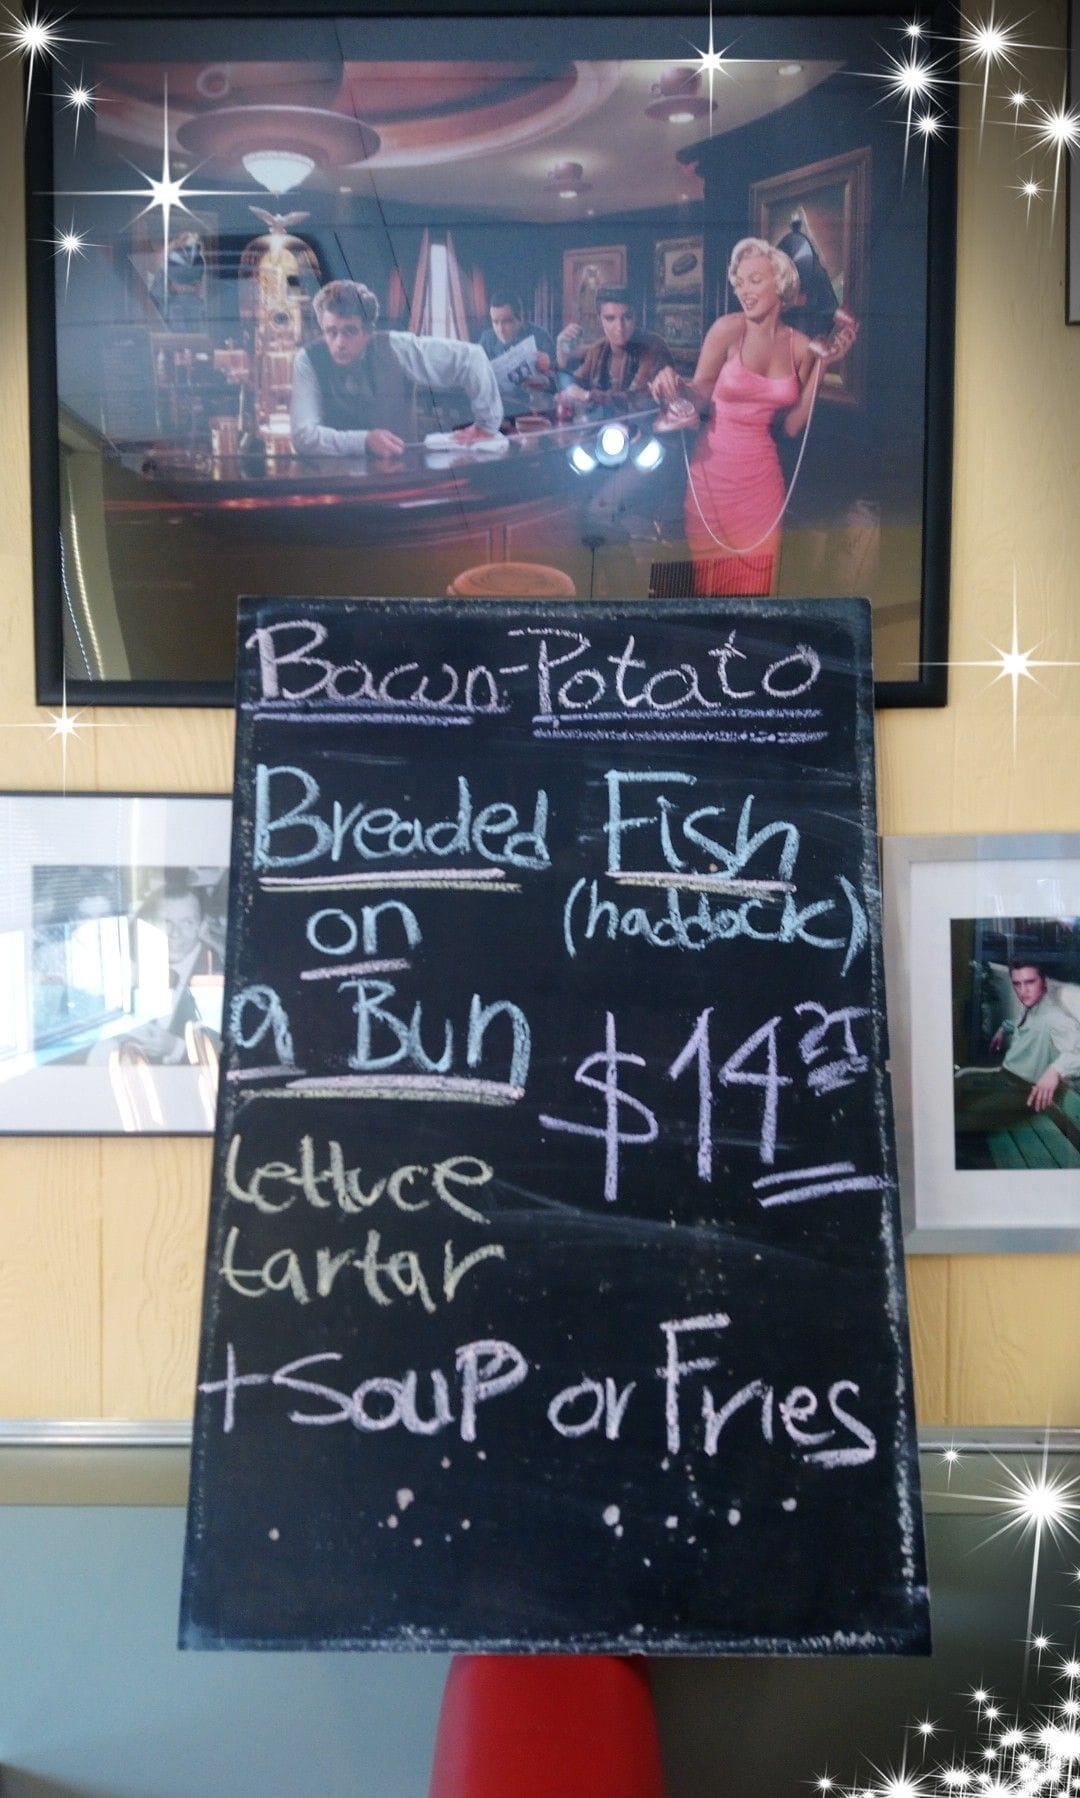 Bacon-Potato
Breaded Fish
on (haddock)
a Bun $14.25
lettuce
tartar
+ Soup or Fries